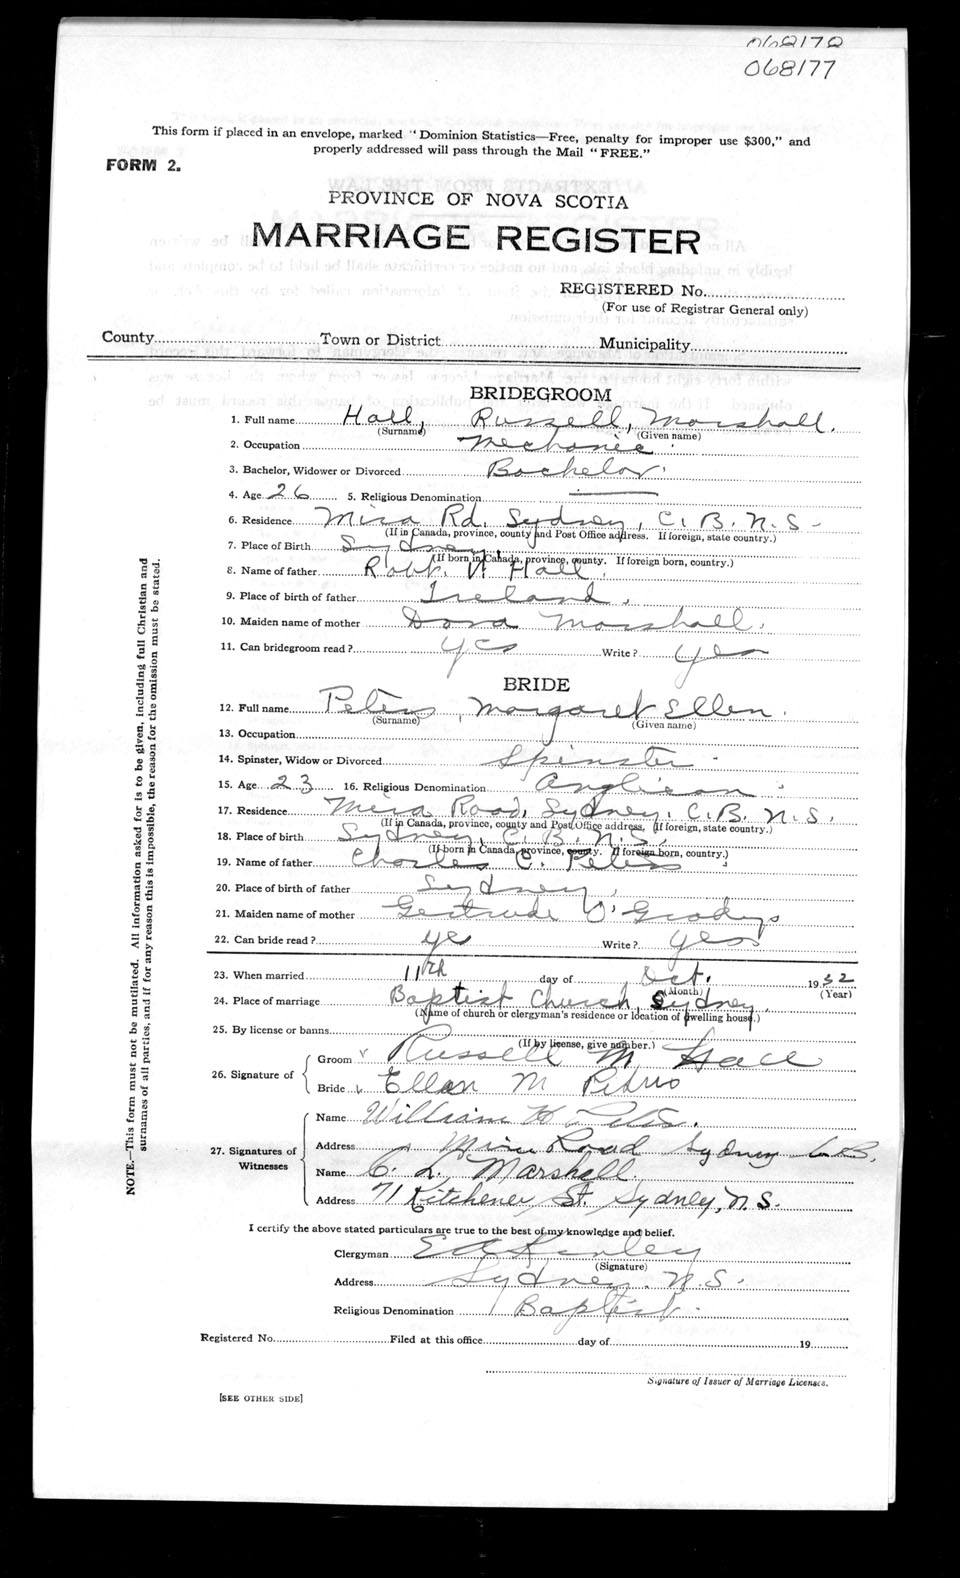 068178
068177
This form if placed in an envelope, marked "Dominion Statistics—Free, penalty for improper use $300," and
properly addressed will pass through the Mail "FREE."
FORM 2.
PROVINCE OF NOVA SCOTIA
MARRIAGE REGISTER
REGISTERED No.
(For use of Registrar General only)
County Town or District Municipality
BRIDEGROOM
1. Full name Hall, Russell, Marshall.
(Surname) (Given name)
2. Occupation Mechanic.
3. Bachelor, Widower or Divorced Bachelor.
4. Age 26 5. Religious Denomination —
6. Residence Mira Rd, Sydney, C. B. N. S.
(If in Canada, province, county and Post Office address. If foreign, state country.)
7. Place of Birth Sydney,
(If born in Canada, province, county. If foreign born, country.)
8. Name of father Robt. Hall.
9. Place of birth of father Ireland.
10. Maiden name of mother Dora Marshall.
11. Can bridegroom read? yes Write? yes
BRIDE
12. Full name Peters, Margaret Ellen.
(Surname) (Given name)
13. Occupation
14. Spinster, Widow or Divorced Spinster.
15. Age 23 16. Religious Denomination Anglican.
17. Residence Mira Road, Sydney, C. B. N. S.
(If in Canada, province, county and Post Office address, If foreign, state country.)
18. Place of birth Sydney, C. B. N. S.
(If born in Canada, province, county. If foreign born, country.)
19. Name of father Charles C. Peters
20. Place of birth of father Sydney,
21. Maiden name of mother Gertrude
22. Can bride read? yes Write? yes
23. When married 11th day of Oct. 1932
(Month) (Year)
24. Place of marriage Baptist Church, Sydney.
(Name of church or clergyman's residence or location of dwelling house.)
25. By license or banns
(If by license, give number.)
26. Signature of Groom Russell M Hall
Bride Ellen M
27. Signatures of Witnesses Name William H
Address Mira Road Sydney C.B.
Name C. L. Marshall.
Address 71 Kitchener St. Sydney, N. S.
I certify the above stated particulars are true to the best of my knowledge and belief.
Clergyman
(Signature)
Address Sydney. N.S.
Religious Denomination Baptist.
Registered No. Filed at this office day of 19
Signature of Issuer of Marriage Licenses.
[SEE OTHER SIDE]
NOTE.—This form must not be mutilated. All information asked for is to be given, including full Christian and
surnames of all parties, and if for any reason this is impossible, the reason for the omission must be stated.